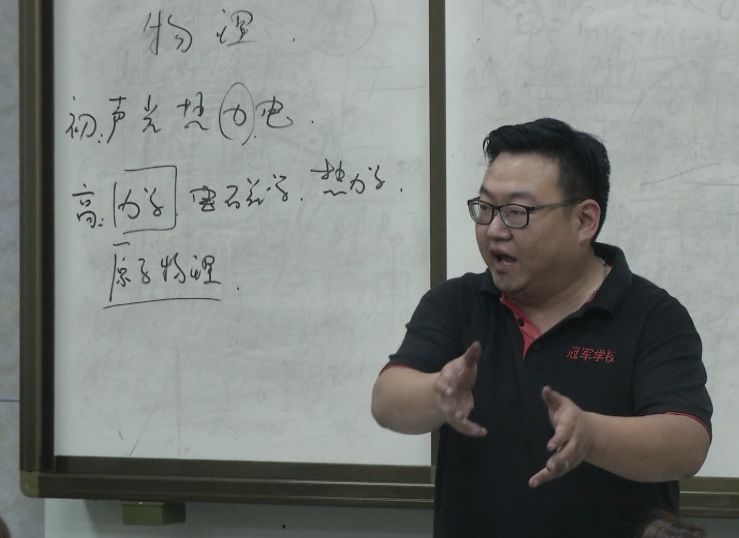 物理.
初:声光热力电.
高:力学 电磁学.热力学.
原子物理.
冠军学校